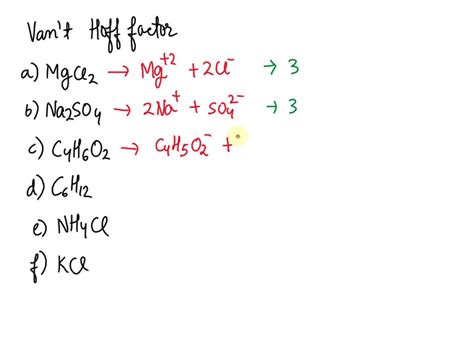 Van't Hoff factor
a) MgCl2 → Mg+2 + 2Cl- → 3
b) Na2SO4 → 2Na+ + SO4 2- → 3
c) C4H6O2 → C4H5O2- +
d) C6H12
e) NH4Cl
f) KCl